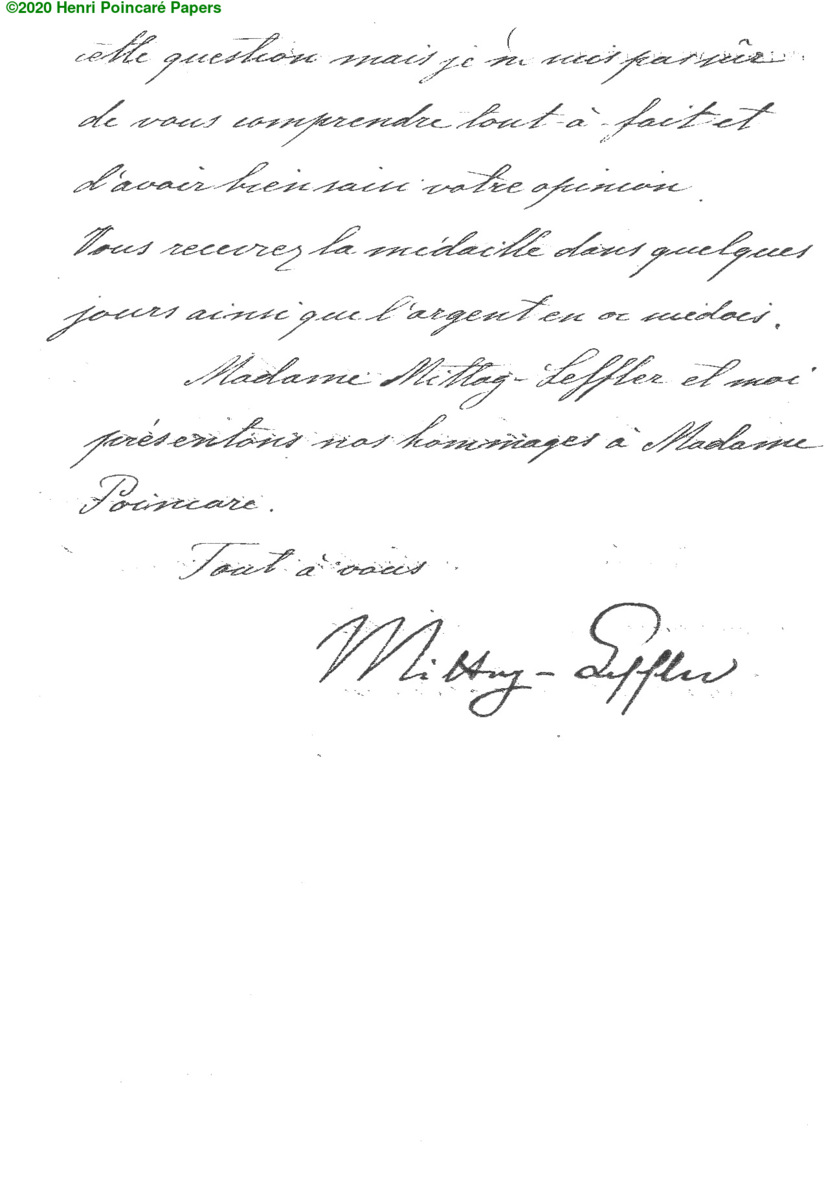 ©2020 Henri Poincaré Papers
cette question mais je ne suis pas sûr
de vous comprendre tout à fait et
d'avoir bien saisi votre opinion.
Vous recevrez la médaille dans quelques
jours ainsi que l'argent en or suédois.
Madame Mittag-Leffler et moi
présentons nos hommages à Madame
Poincaré.
Tout à vous
Mittag-Leffler